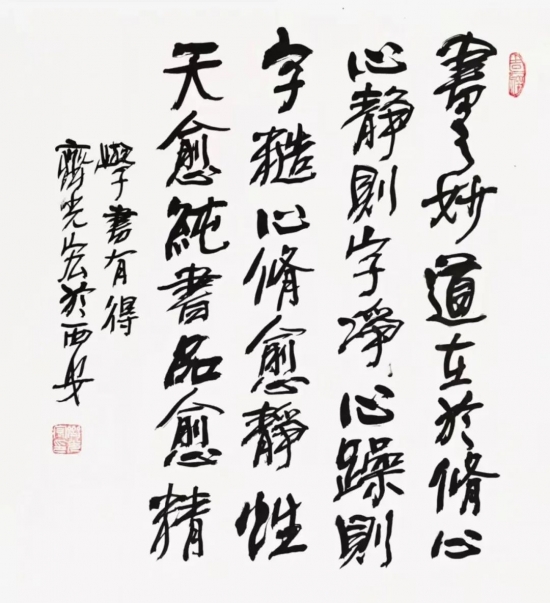 書之妙道在於脩心
心靜則字凈心躁則
字糙心脩愈靜性
天愈純書品愈精
學書有得
齊光宏於西安